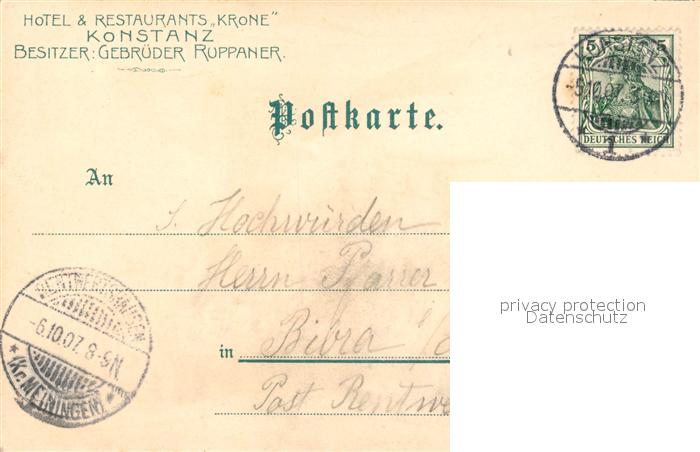 HOTEL & RESTAURANTS „KRONE"
KONSTANZ
BESITZER: GEBRÜDER RUPPANER.
KONSTANZ
5.10.07.
1
5 5
DEUTSCHES REICH
Postkarte.
An
S. Hochwürden
Herrn Pfarrer
in Bibra
Post Rentwe
-6.10.07. 8-9N.
* (Kr. MEININGEN) *
privacy protection
Datenschutz